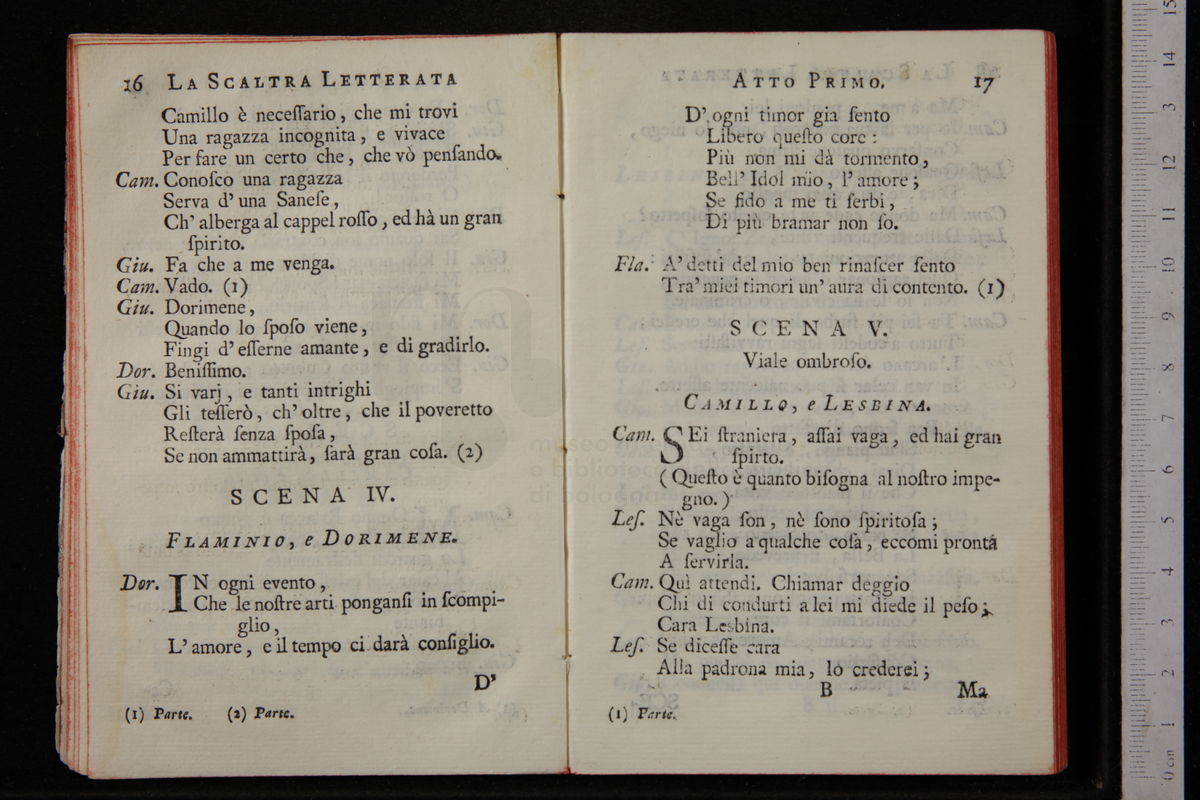 16 LA SCALTRA LETTERATA
Camillo è neceſſario, che mi trovi
Una ragazza incognita, e vivace
Per fare un certo che, che vò penſando.
Cam. Conoſco una ragazza
Serva d' una Saneſe,
Ch' alberga al cappel roſſo, ed hà un gran
ſpirito.
Giu. Fa che a me venga.
Cam. Vado. (1)
Giu. Dorimene,
Quando lo ſpoſo viene,
Fingi d' eſſerne amante, e di gradirlo.
Dor. Beniſſimo.
Giu. Si varj, e tanti intrighi
Gli teſſerò, ch' oltre, che il poveretto
Reſterà ſenza ſpoſa,
Se non ammattirà, ſarà gran coſa. (2)
SCENA IV.
FLAMINIO, e DORIMENE.
Dor. IN ogni evento,
Che le noſtre arti ponganſi in ſcompi-
glio,
L' amore, e il tempo ci darà conſiglio.
D'
(1) Parte. (2) Parte.
ATTO PRIMO. 17
D' ogni timor gia ſento
Libero queſto core:
Più non mi dà tormento,
Bell' Idol mio, l' amore;
Se fido a me ti ſerbi,
Di più bramar non ſo.
Fla. A' detti del mio ben rinaſcer ſento
Tra' miei timori un' aura di contento. (1)
SCENA V.
Viale ombroſo.
CAMILLO, e LESBINA.
Cam. SEi ſtraniera, aſſai vaga, ed hai gran
ſpirto.
(Queſto è quanto biſogna al noſtro impe-
gno.)
Leſ. Nè vaga ſon, nè ſono ſpiritoſa;
Se vaglio a qualche coſa, eccomi pronta
A ſervirla.
Cam. Quì attendi. Chiamar deggio
Chi di condurti a lei mi diede il peſo;
Cara Lesbina.
Leſ. Se diceſſe cara
Alla padrona mia, lo crederei;
B Ma
(1) Parte.
museo
e biblioteca
di bologna
0 cm 1 2 3 4 5 6 7 8 9 10 11 12 13 14 15